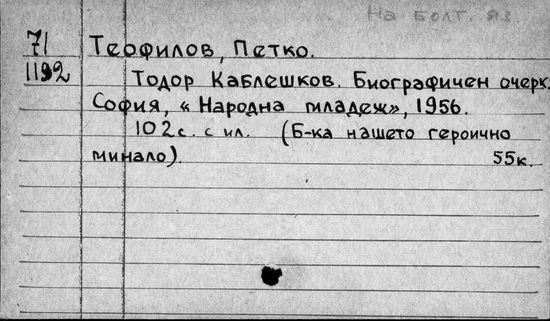 На болг. яз
71
1192
Теофилов, Петко.
Тодор Каблешков. Биографичен очерк.
София, « Народна младеж», 1956.
102с. с ил. (Б-ка нашето героично
минало). 55к.